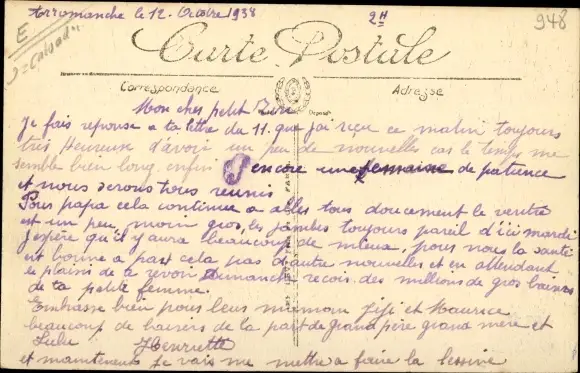 Arromanche le 12. Octobre 1938
2H
948
E
J = Calvados
Carte Postale
Correspondance
Adresse
Mon cher petit
Je fais reponse a ta lettre du 11. que j'ai reçu ce matin toujours
très Heureuse d'avoir un peu de nouvelles car le temps me
semble bien long enfin encore une semaine de patience
et nous serons tous reunis
Pour papa cela continue a aller tous doucement le ventre
est un peu moin gros, les jambes toujours pareil d'ici mardi
j'espère qu'il y aura beaucoup de mieux, pour nous la santé
est bonne a part cela pas d'autre nouvelles et en attendant
le plaisir de te revoir Dimanche recois des millions de gros baisers
de ta petite femme.
Embrasse bien pour leur maman Gigi et Maurice
beaucoup de baisers de la part de grand père grand mère et
Lulu Henriette
et maintenant je vais me mettre a faire la lessive